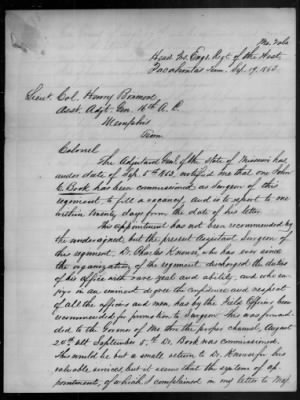 Mo. Vols
Head Qrs. Engr. Regt. of the West.
Pocahontas Tenn. Sep. 19. 1863.
Lieut. Col. Henry Binmore
Asst. Adjt. Gen. 16th A. C.
Memphis
Tenn
Colonel
The Adjutant Genl. of the State of Missouri has
under date of Sep. 5th 1863, notified me that one John
C. Book has been commissioned as Surgeon of this
regiment to fill a vacancy, and is to report to me
within twenty days from the date of his letter.
This appointment has not been recommended by
the undersigned, but the present Assistant Surgeon of
this regiment, Dr. Charles Knower, who has ever since
the organization of the regiment, discharged the duties
of his office with rare zeal and ability, and who en-
joys in an eminent degree the confidence and respect
of all the officers and men, has by the Field Officers been
recommended for promotion to Surgeon. This was forwar-
ded to the Governor of Mo. thro the proper channel, August
24th till September 5th Dr. Book was commissioned.
This would be but a small return to Dr. Knower for his
valuable services, but it seems that the system of ap-
pointments, of which I complained in my letter to Maj.